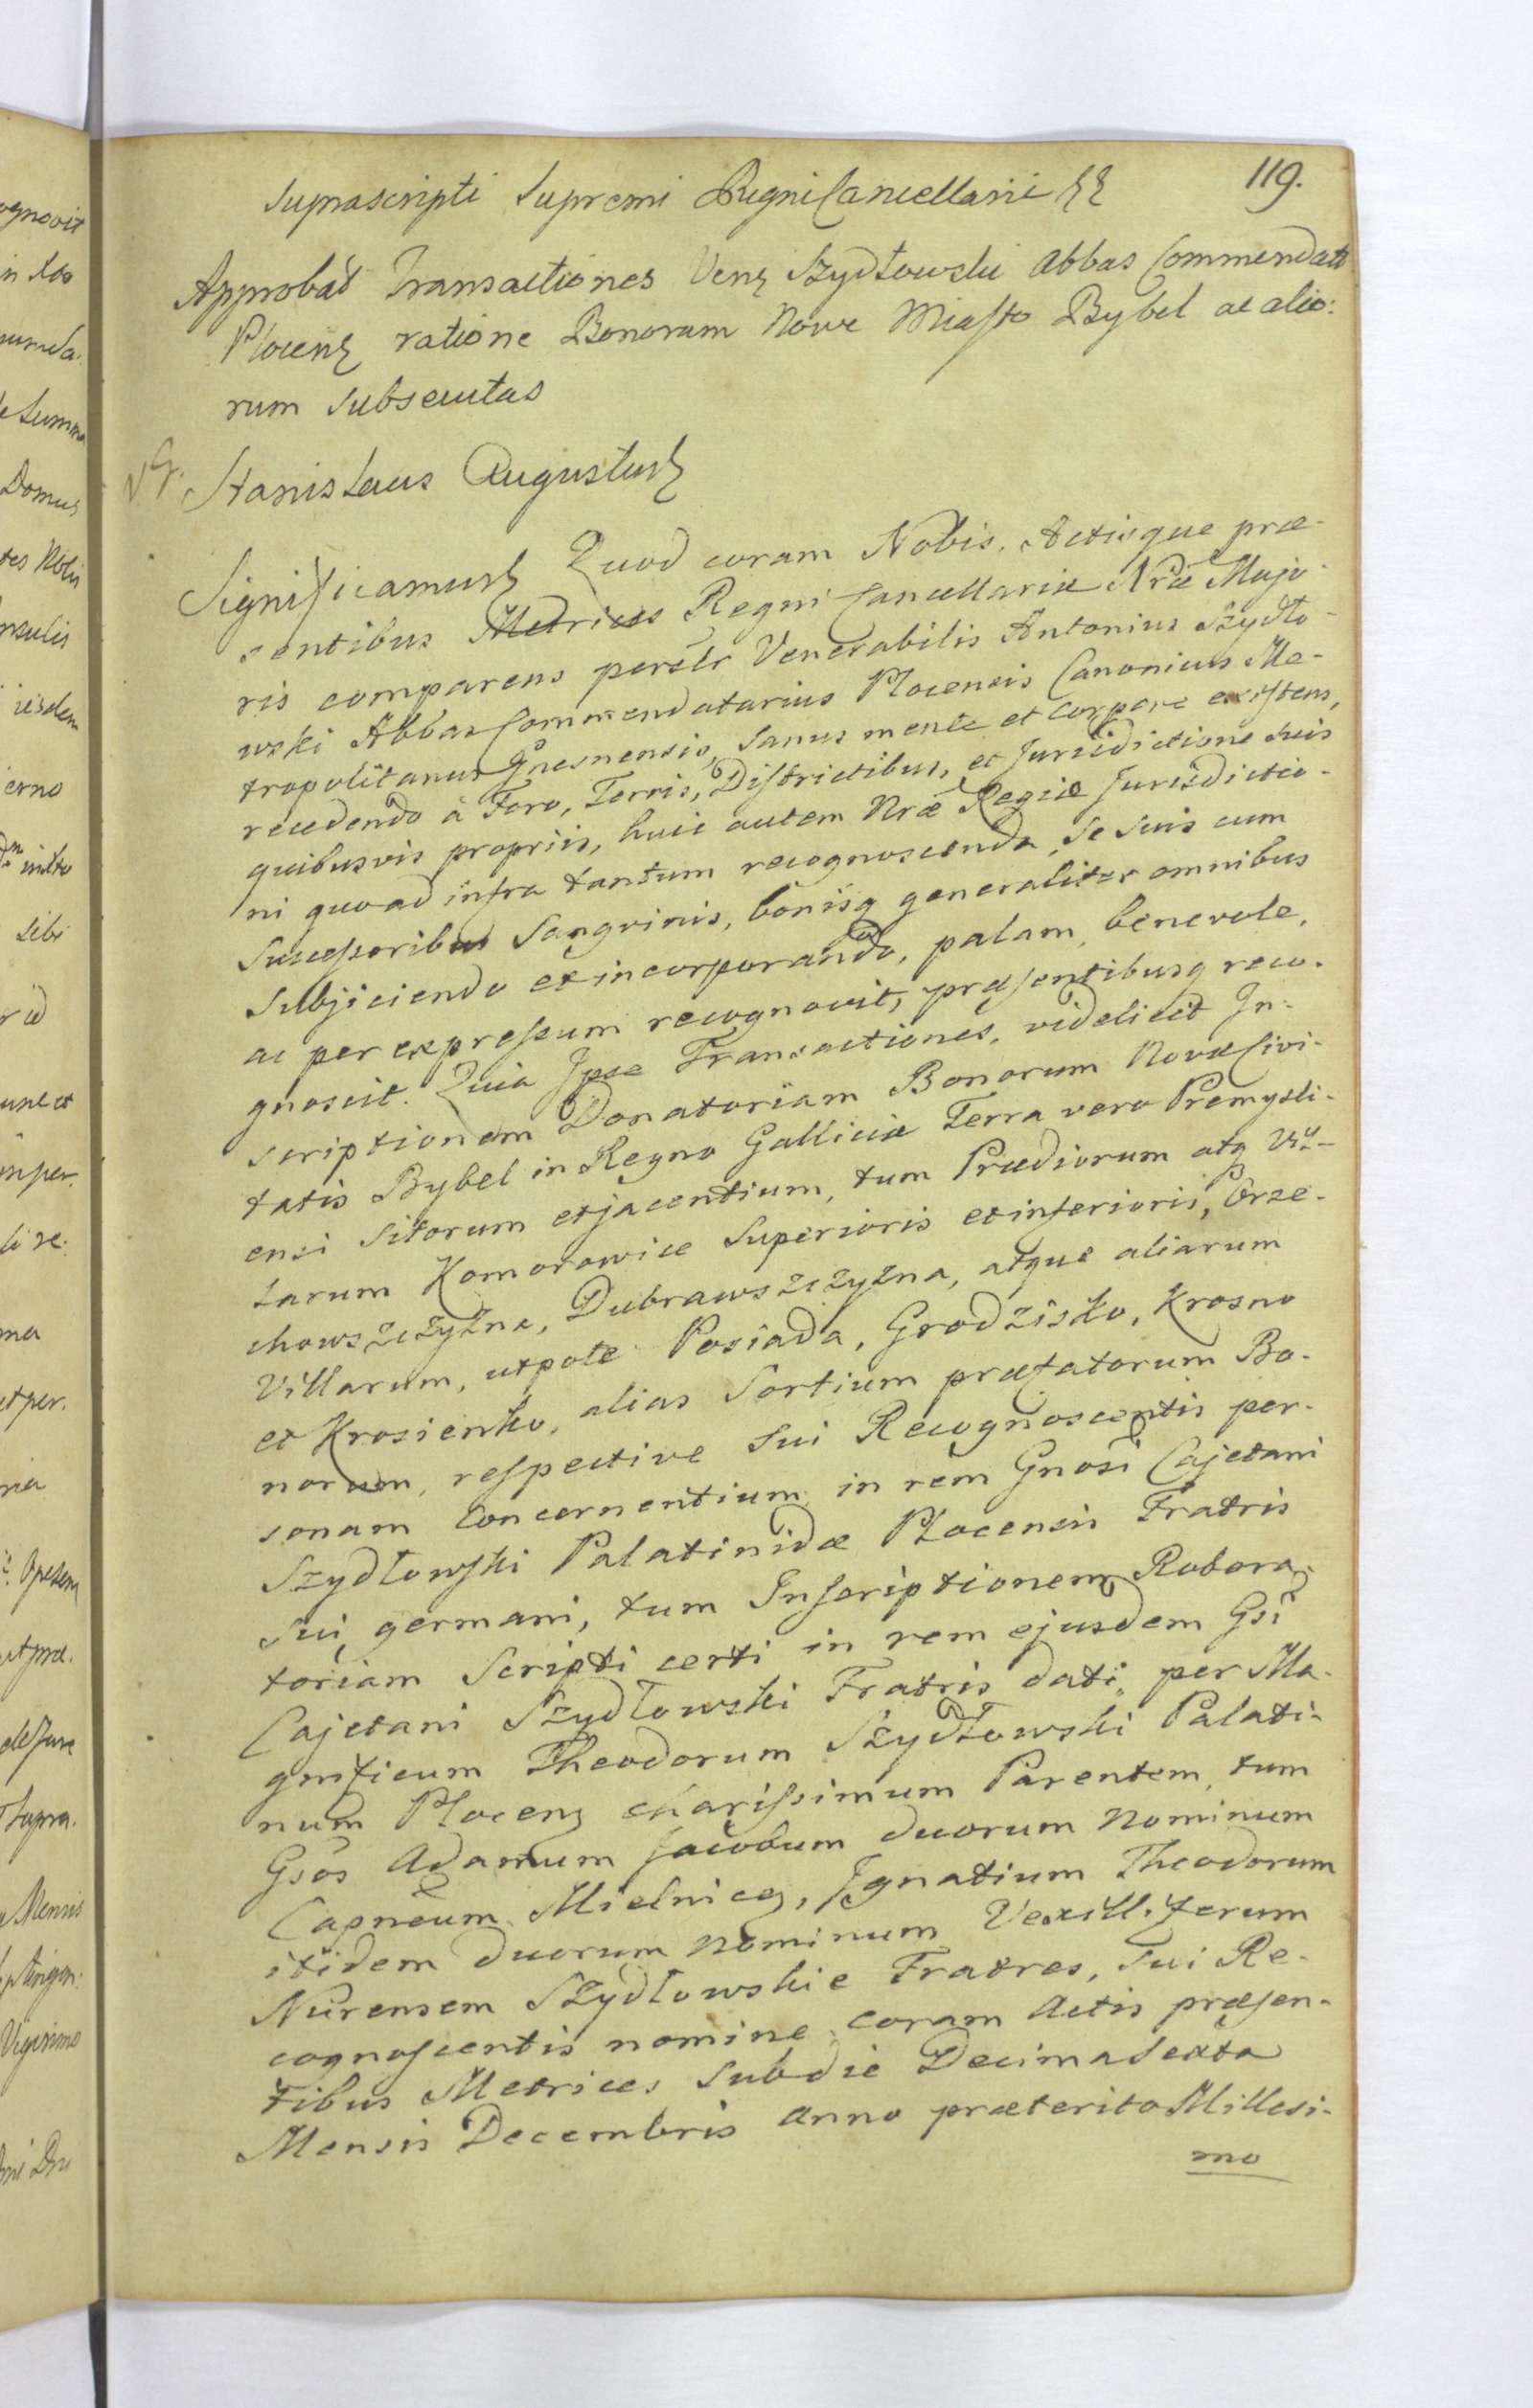 119.
Suprascripti Supremi Regni Cancellarii
Approbat Transactiones Ven Szydłowski Abbas Commendat
Płocen ratione Bonorum Nowe Miasto Bybel ac alio:
rum subsecutas
Stanislaus Augustus
Significamus Quod coram Nobis, Actisque præ-
sentibus Metrices Regni Cancellariæ Nræ Majo-
ris comparens persłr Venerabilis Antonius Szydło-
wski Abbas Commendatarius Płocensis Canonicus Me-
tropolitanus Gnesnensis, Sanus mente et Corpore existens,
recedendo à Foro, Terris, Districtibus, et Jurisdictione suis
quibusvis propriis, huic autem Nræ Regiæ Jurisdictio-
ni quoad infra tantum recognoscenda, se suis cum
Successoribus Sangvinis, bonisq generaliter omnibus
Subjiciendo et incorporando, palam, benevole,
ac per expressum recognovit, præsentibusq reco-
gnoscit. Quia Ipse Transactiones, videlicet In-
scriptionem Donatoriam Bonorum Novæ Civi-
tatis Bybel in Regno Galliciæ Terra vero Premysli-
ensi Sitorum et jacentium, tum Prædiorum atq Vil-
larum Komorowice Superioris et inferioris, Orze-
chowszczyzna, Dubrawszczyzna, atque aliarum
Villarum, utpote Posiada, Grodzisko, Krosno
et Krosienko, alias Sortium præfatorum Bo-
norum, respective Sui Recognoscentis per-
sonam Concernentium in rem Gnosi Cajetani
Szydłowski Palatinidæ Płocensis Fratris
Sui germani, tum Inscriptionem Robora-
toriam Scripti certi in rem ejusdem Gsi
Cajetani Szydłowski Fratris dati, per Ma-
gnificum Theodorum Szydłowski Palati-
num Płocen charissimum Parentem, tum
Gsos Adamum Jacobum duorum Nominum
Capneum Mielnicen, Ignatium Theodorum
itidem duorum Nominum Vexilliferum
Nurensem Szydłowskie Fratres, Sui Re-
cognoscentis nomine coram Actis præsen-
tibus Metrices sub die Decima Sexta
Mensis Decembris Anno præterito Millesi-
mo